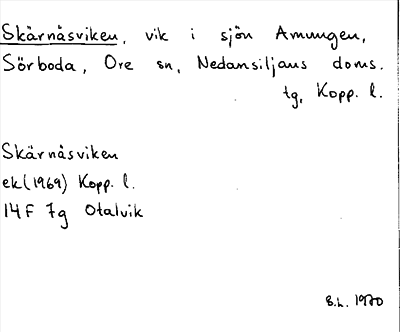 Skärnåsviken, vik i sjön Amungen,
Sörboda, Ore sn, Nedansiljans doms.
tg, Kopp. l.
Skärnåsviken
ek(1969) Kopp. l.
14F 7g Otalvik
B.L. 1970